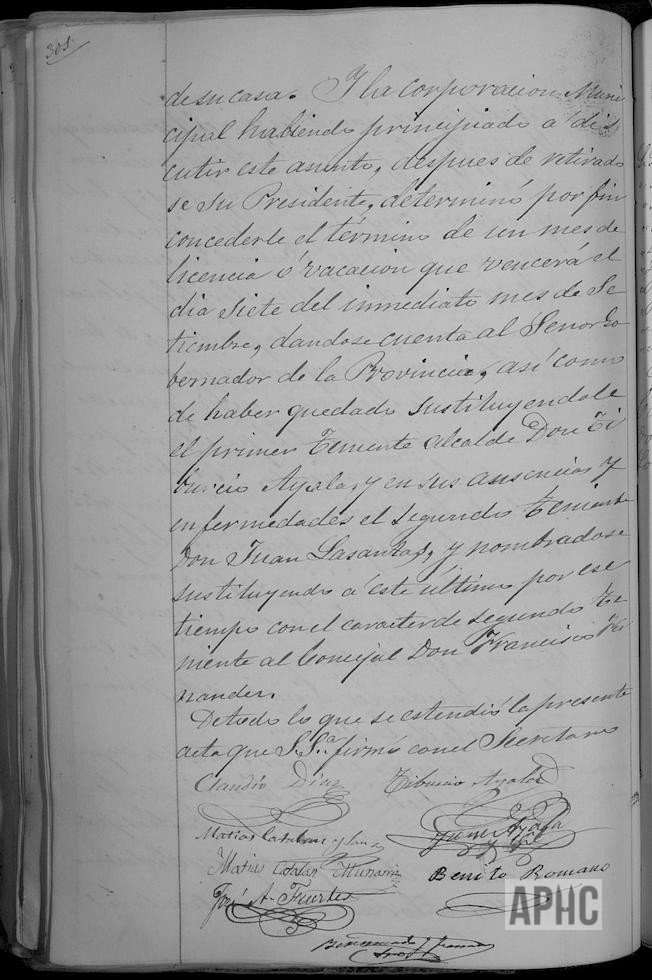 301
de su casa. Y la corporacion Muni
cipal habiendo principiado a dis
cutir este asunto, despues de retirado
se Su Presidente, determinó por fin
concederle el término de un mes de
licencia ó vacacion que vencerá el
dia siete del inmediato mes de Se
tiembre, dandose cuenta al Señor Go
bernador de la Provincia, así como
de haber quedado sustituyendole
el primer Teniente alcalde Don Ti
burcio Ayala, y en sus ausencias y
enfermedades el segundo Teniente
Don Juan Lasantas, y nombradose
sustituyendo á este último por ese
tiempo con el caracter de segundo Te
niente al Concejal Don Francisco Fer
nandez.
De todo lo que se estendió la presente
acta que S.Sª. firmó con el Secretario
Claudio Diaz Tiburcio Ayala
Matias Catalan y Juan Ayala
Matias Catalan
Benito Romano
José A. Fuertes
Bienvenido
APHC